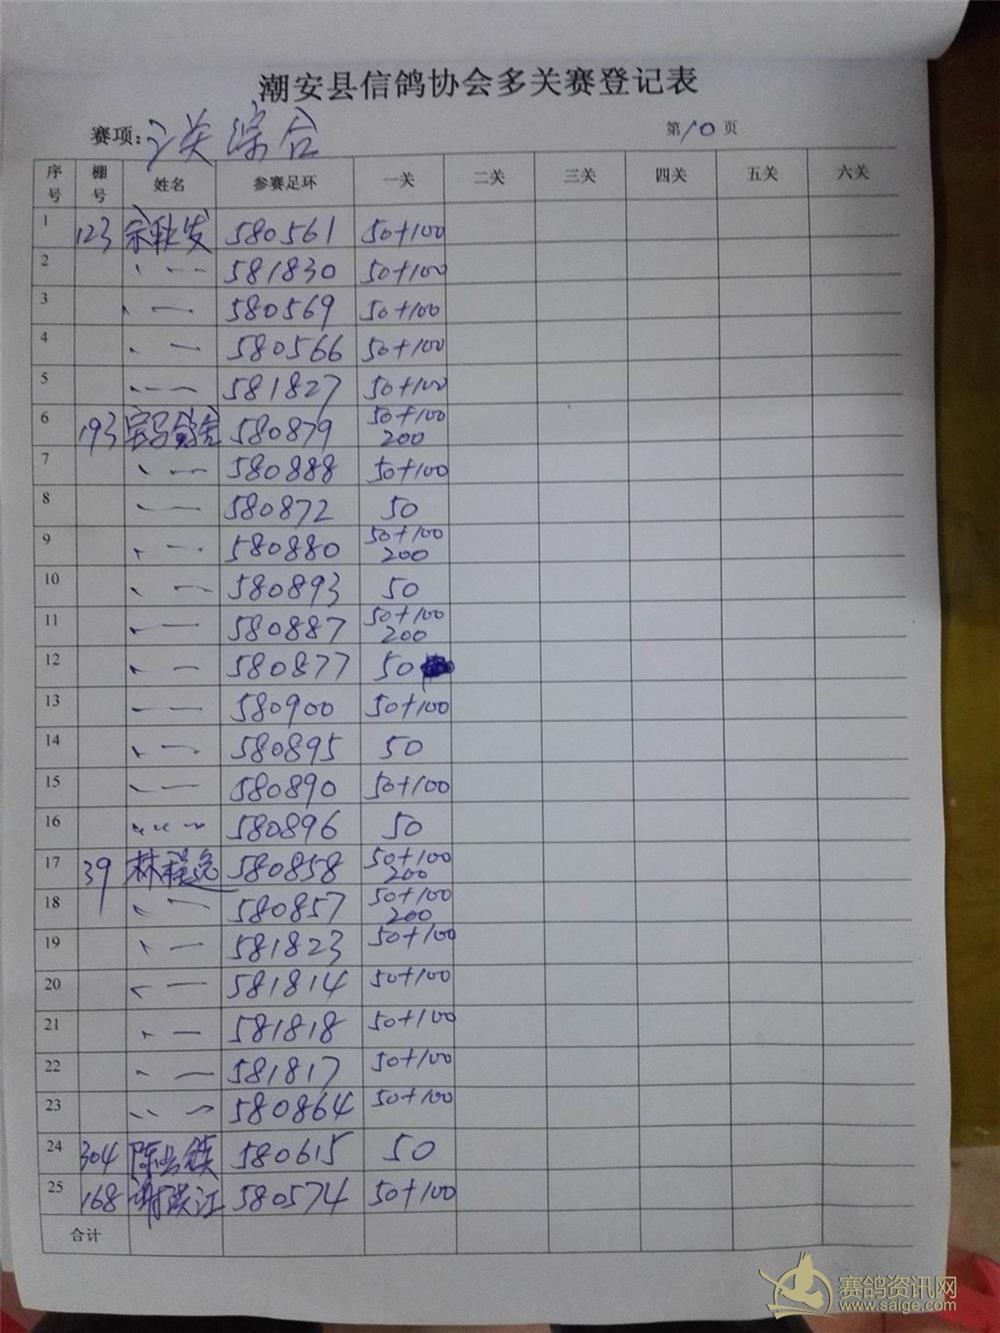 潮安县信鸽协会多关赛登记表
赛项: 关综合 第10页
序号 棚号 姓名 参赛足环 一关 二关 三关 四关 五关 六关
1 123 宋秋发 580561 50+100
2 581830 50+100
3 580569 50+100
4 580566 50+100
5 581827 50+100
6 193 580879 50+100 200
7 580888 50+100
8 580872 50
9 580880 50+100 200
10 580893 50
11 580887 50+100 200
12 580877 50
13 580900 50+100
14 580895 50
15 580890 50+100
16 580896 50
17 39 林 580858 50+100 200
18 580857 50+100 200
19 581823 50+100
20 581814 50+100
21 581818 50+100
22 581817 50+100
23 580864 50+100
24 304 陈 580615 50
25 168 谢洪江 580574 50+100
合计
赛鸽资讯网
www.saige.com